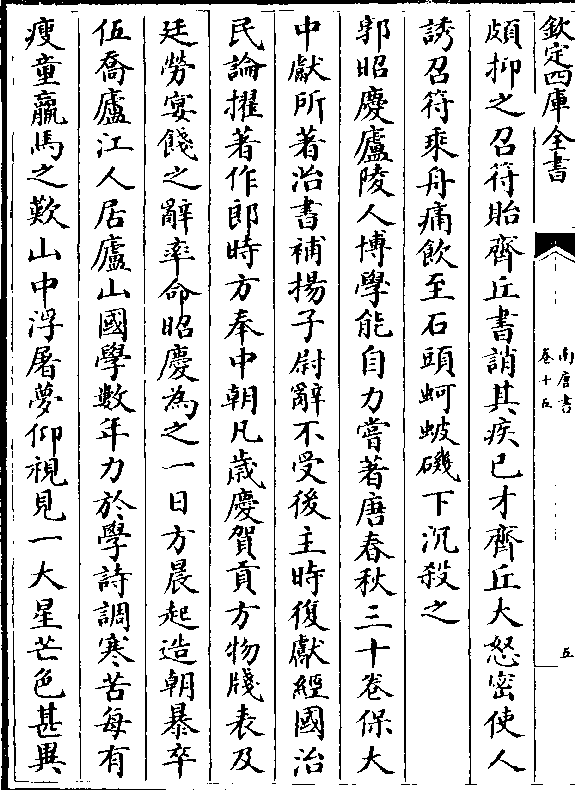 欽定四庫全書
南唐書
卷十五
五
頗抑之召符貽齊丘書誚其疾已才齊丘大怒密使人
誘召符乘舟痛飲至石頭蚵蚾磯下沉殺之
郭昭慶廬陵人博學能自力嘗著唐春秋三十卷保大
中獻所著治書補揚子尉辭不受後主時復獻經國治
民論擢著作郎時方奉中朝凡歲慶賀貢方物牋表及
廷勞宴餞之辭率命昭慶為之一日方晨起造朝暴卒
伍喬廬江人居廬山國學數年力於學詩調寒苦每有
瘦童羸馬之歎山中浮屠夢仰視見一大星芒色甚異